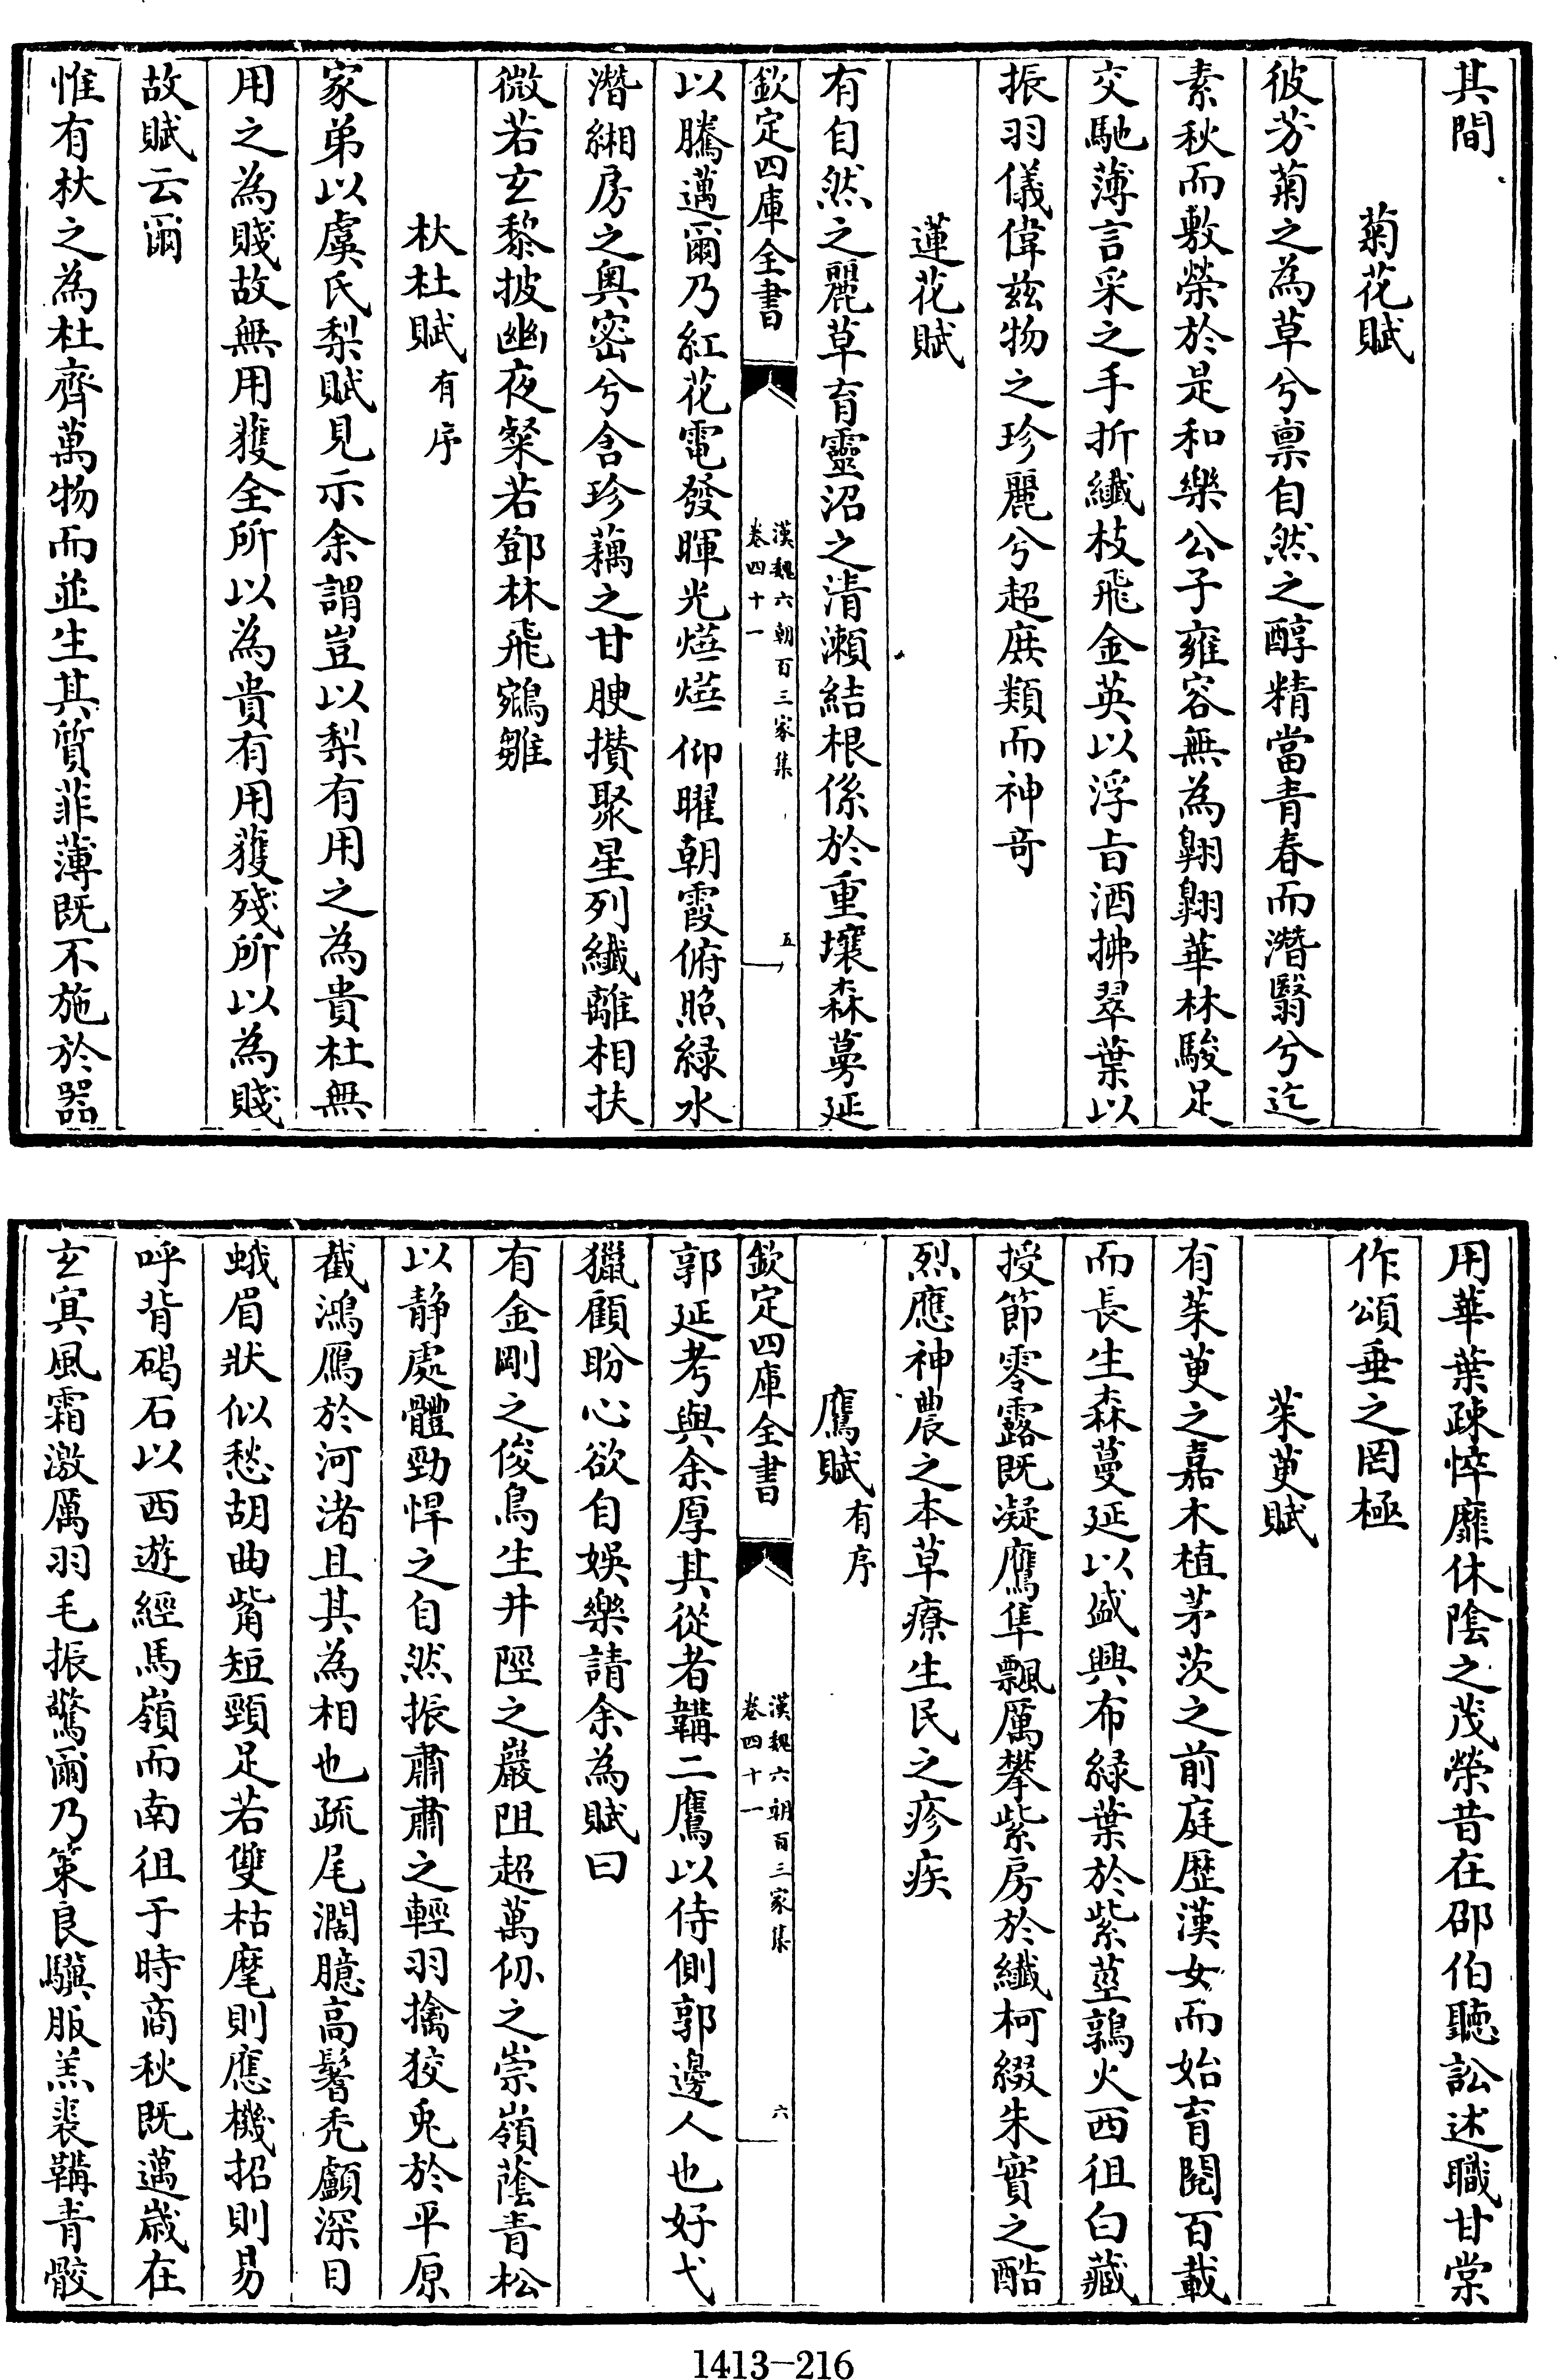 其間
菊花賦
彼芬菊之為草兮禀自然之醇精當青春而潛翳兮迄
素秋而敷榮於是和樂公子雍容無為翺翔華林駿足
交馳薄言采之手折纖枝飛金英以浮旨酒拂翠葉以
振羽儀偉兹物之珍麗兮超庶類而神竒
蓮花賦
有自然之麗草育靈沼之清瀬結根係於重壤森蔓延
欽定四庫全書
漢魏六朝百三家集
卷四十一
五
以騰邁爾乃紅花電發暉光燁燁仰曜朝霞俯照緑水
潛緗房之奥密兮含珍藕之甘腴攢聚星列纖離相扶
微若玄黎披幽夜粲若鄧林飛鵷雛
杕杜賦有序
家弟以虞氏梨賦見示余謂豈以梨有用之為貴杜無
用之為賤故無用獲全所以為貴有用獲殘所以為賤
故賦云爾
惟有杕之為杜齊萬物而並生其質菲薄既不施於器
用華葉疎悴靡休陰之茂榮昔在邵伯聽訟述職甘棠
作頌垂之罔極
茱萸賦
有茱萸之嘉木植茅茨之前庭歴漢女而始育閲百載
而長生森蔓延以盛興布緑葉於紫莖鶉火西徂白藏
授節零露既凝鷹隼飄厲攀紫房於纖柯綴朱實之酷
烈應神農之本草療生民之疹疾
鷹賦有序
欽定四庫全書
漢魏六朝百三家集
卷四十一
六
郭延考與余厚其從者韝二鷹以侍側郭邊人也好弋
獵顧盼心欲自娱樂請余為賦曰
有金剛之俊鳥生井陘之巖阻超萬仞之崇嶺蔭青松
以静處體勁悍之自然振肅肅之輕羽擒狡兎於平原
截鴻鴈於河渚且其為相也疏尾濶臆高髻秃顱深目
蛾眉狀似愁胡曲觜短頸足若雙枯麾則應機招則易
呼背碣石以西遊經馬嶺而南徂于時商秋既邁歲在
玄冥風霜激厲羽毛振驚爾乃策良驥服羔裘韝青骹
1413—216